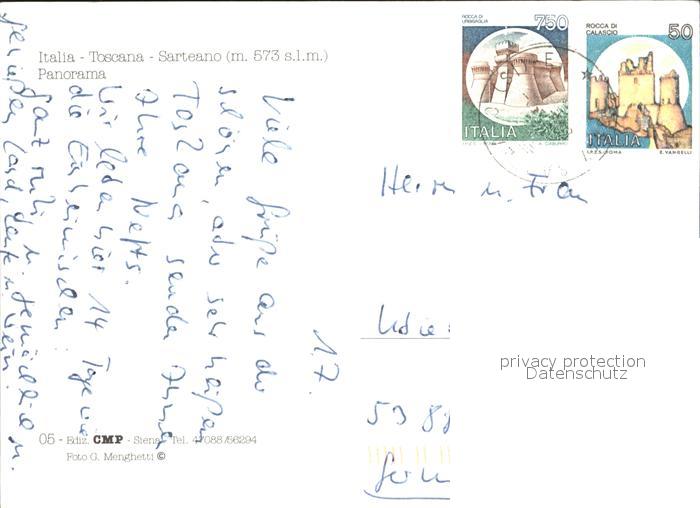 Italia - Toscana - Sarteano (m. 573 s.l.m.)
Panorama
ROCCA DI
URBISAGLIA
750
ITALIA
ROCCA DI
CALASCIO
50
ITALIA
I.P.Z.S. ROMA E. VANGELLI
1.7.
Viele Grüße aus der
schönen, aber sehr heißen
Toskana senden Ihnen
Ihre
Wir leben hier 14 Tage wie
die Einheimischen:
Ganz mit u. gemütlich u.
Land, Leute u. Wein.
Herrn u. Frau
53
05 - Ediz. CMP - Siena - Tel. 47088/56294
Foto G. Menghetti ©
privacy protection
Datenschutz